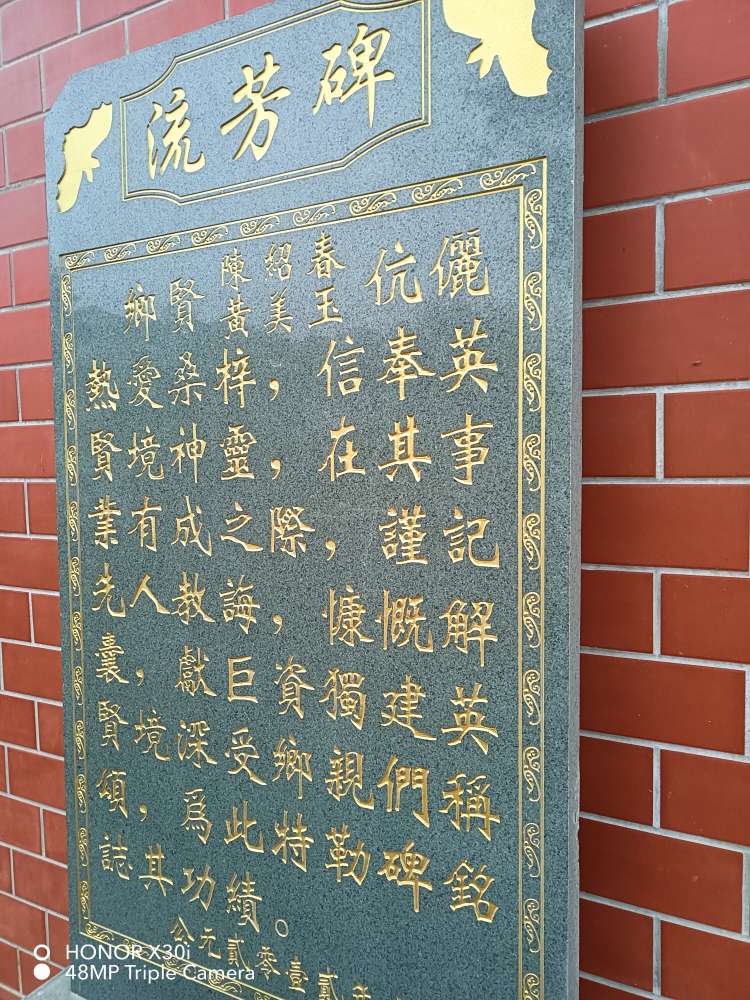 流芳碑
鄉賢陳紹春黃美玉伉儷
熱愛桑梓，信奉英
賢境神靈，在其事
業有成之際，謹記
先人教誨，慷慨解
囊，獻巨資獨建英
賢境，深受鄉親們稱
頌，爲此特勒碑銘
誌其功績。
公元貳零壹貳
HONOR X30i
48MP Triple Camera